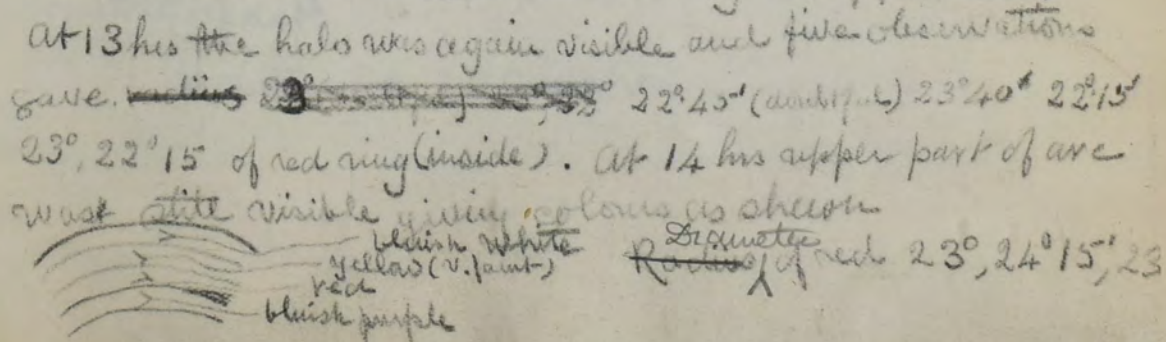 At 13 hrs the halo was again visible and five observations
gave. radius 23° 22°45' (doubtful) 23°40' 22°15'
23°, 22°15 of red ring (inside). At 14 hrs upper part of arc
was still visible giving colours as shewn
bluish white
yellow (v. faint)
red
bluish purple
Diameter
Radius of red 23°, 24°15', 23